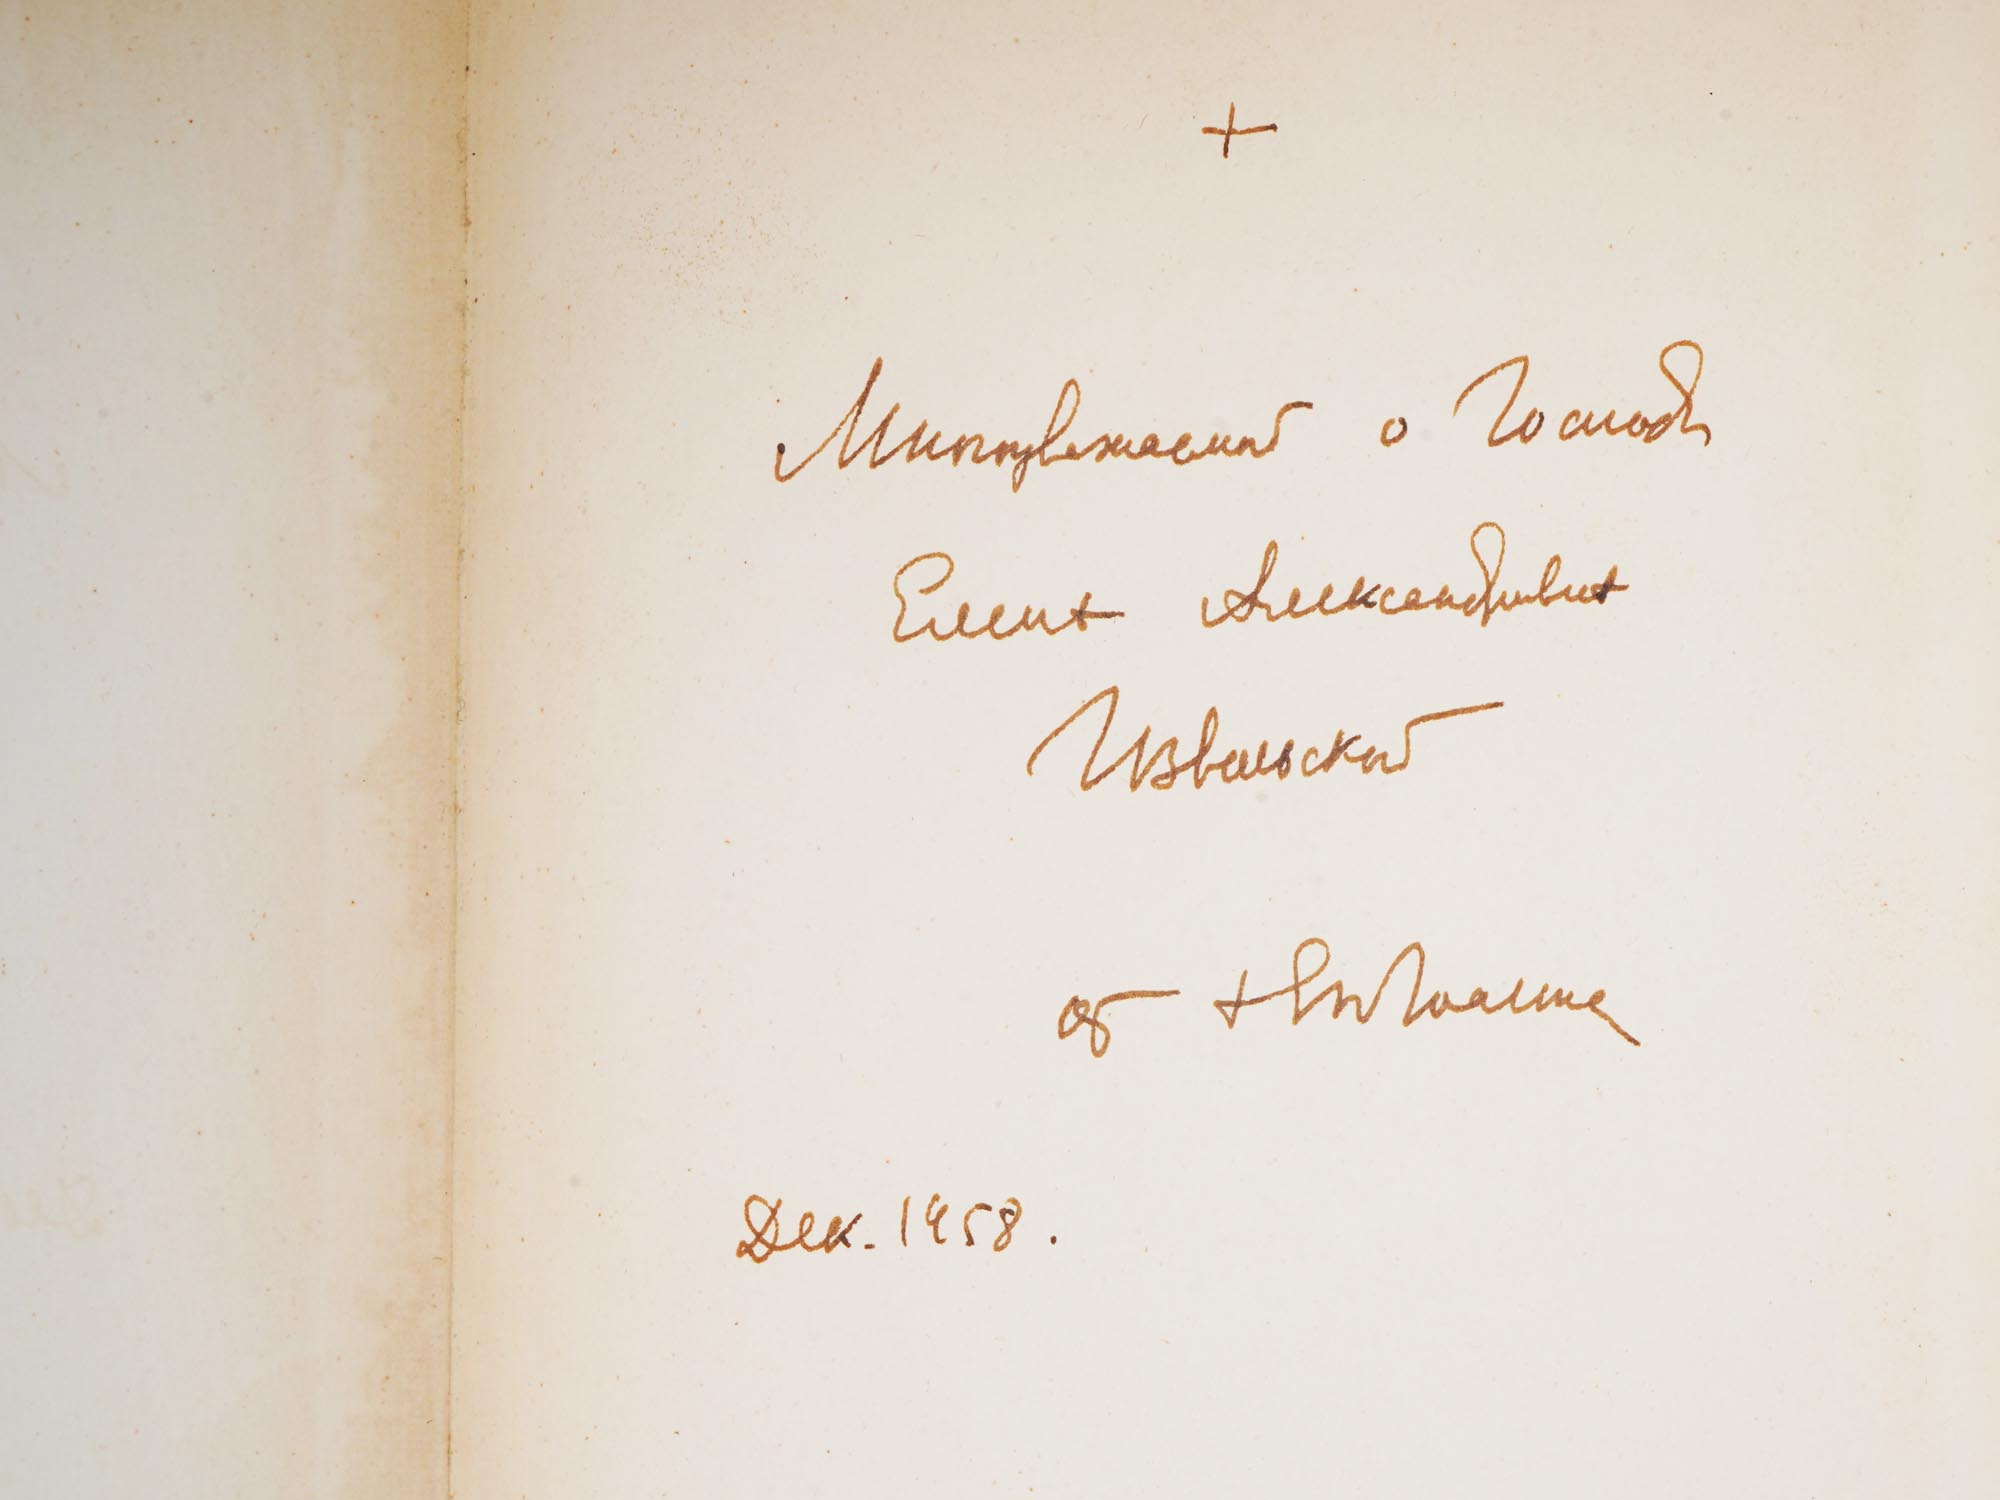 +
Многоуважаемой о Господе
Елене Александровне
Извольской
от + Еп Иоанна
Дек. 1958.